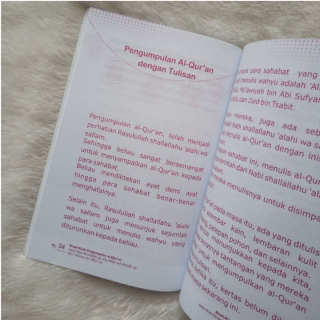 Pengumpulan Al-Qur'an
dengan Tulisan
Pengumpulan al-Qur'an, telah menjadi
perhatian Rasulullah shallallahu 'alaihi wa
sallam.
Sehingga beliau sangat bersemangat
untuk menyampaikan al-Qur'an kepada
para sahabat.
Beliau mendiktekan ayat demi ayat
hingga para sahabat benar-benar
menghafalnya.
Selain itu, Rasulullah shallallahu 'alaihi
wa sallam juga menunjuk sejumlah
sahabat untuk menulis wahyu yang
diturunkan kepada beliau.
34
para sahabat yang
menulis wahyu adalah 'Ali
Mu'awiyah bin Abi Sufyan
dan Zaid bin Tsabit.
mereka, juga ada sebagian
shallallahu 'alaihi wa
al-Qur'an dengan inisiatif
sahabat ini, menulis al-Qur'an
dari Nabi shallallahu 'alaihi
menulisnya untuk disimpan
pada masa itu, ada yang ditulis
kain, lembaran kulit
pelepah pohon, dan selainnya.
tantangan yang mereka
mengumpulkan al-Qur'an
sekarang ini.
itu, kertas belum